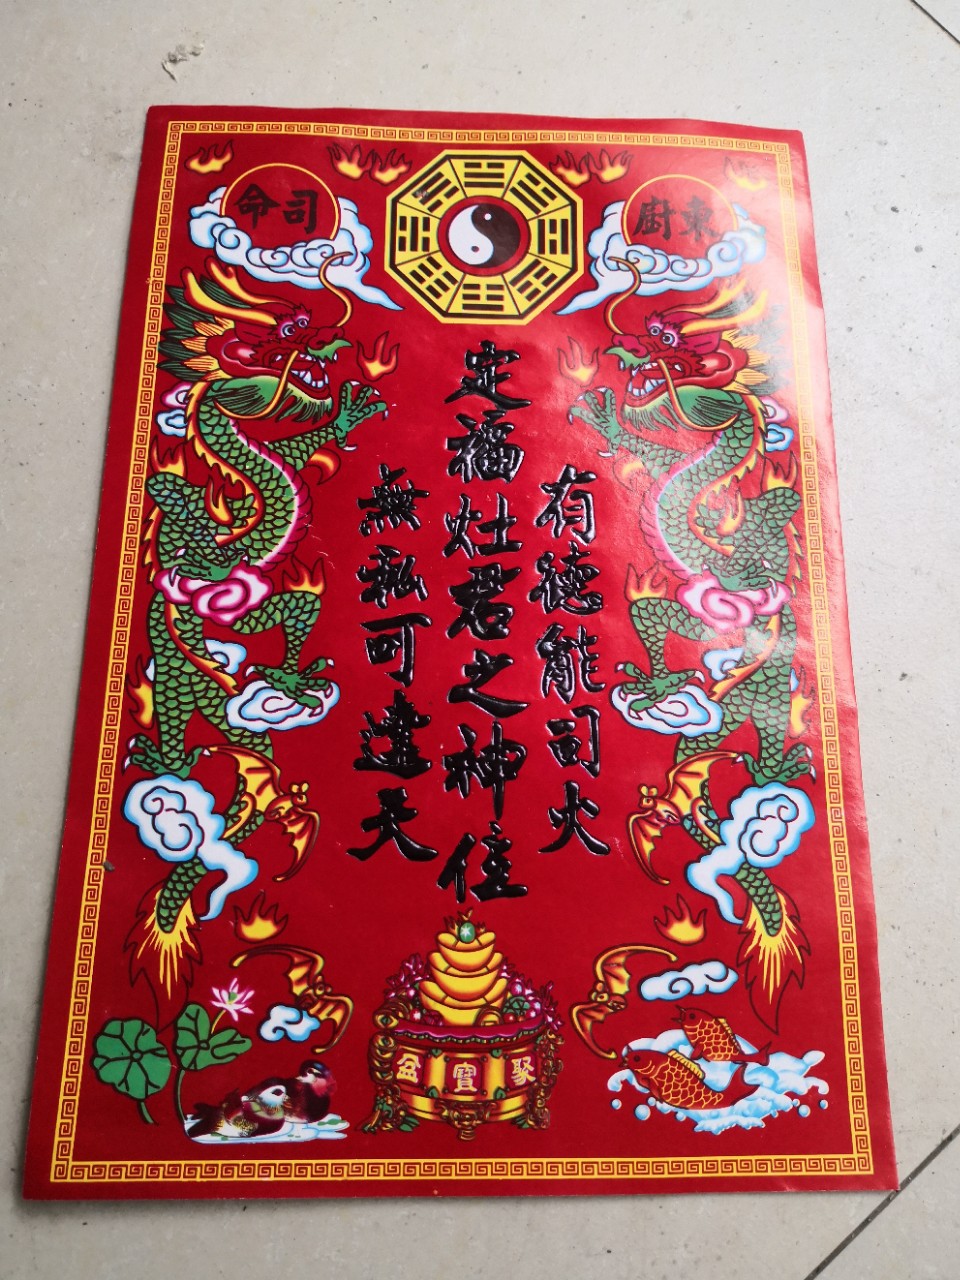 東廚
司命
有德能司火
定福灶君之神位
無私可達天
聚寶盆